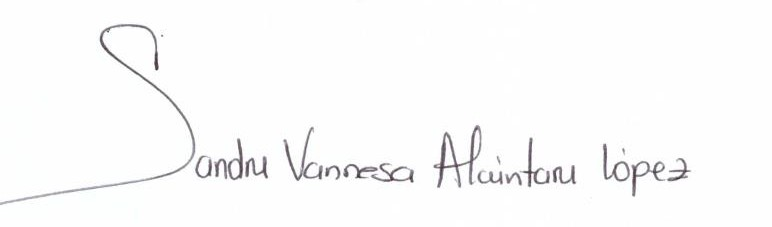 Sandra Vannesa Alcintara López